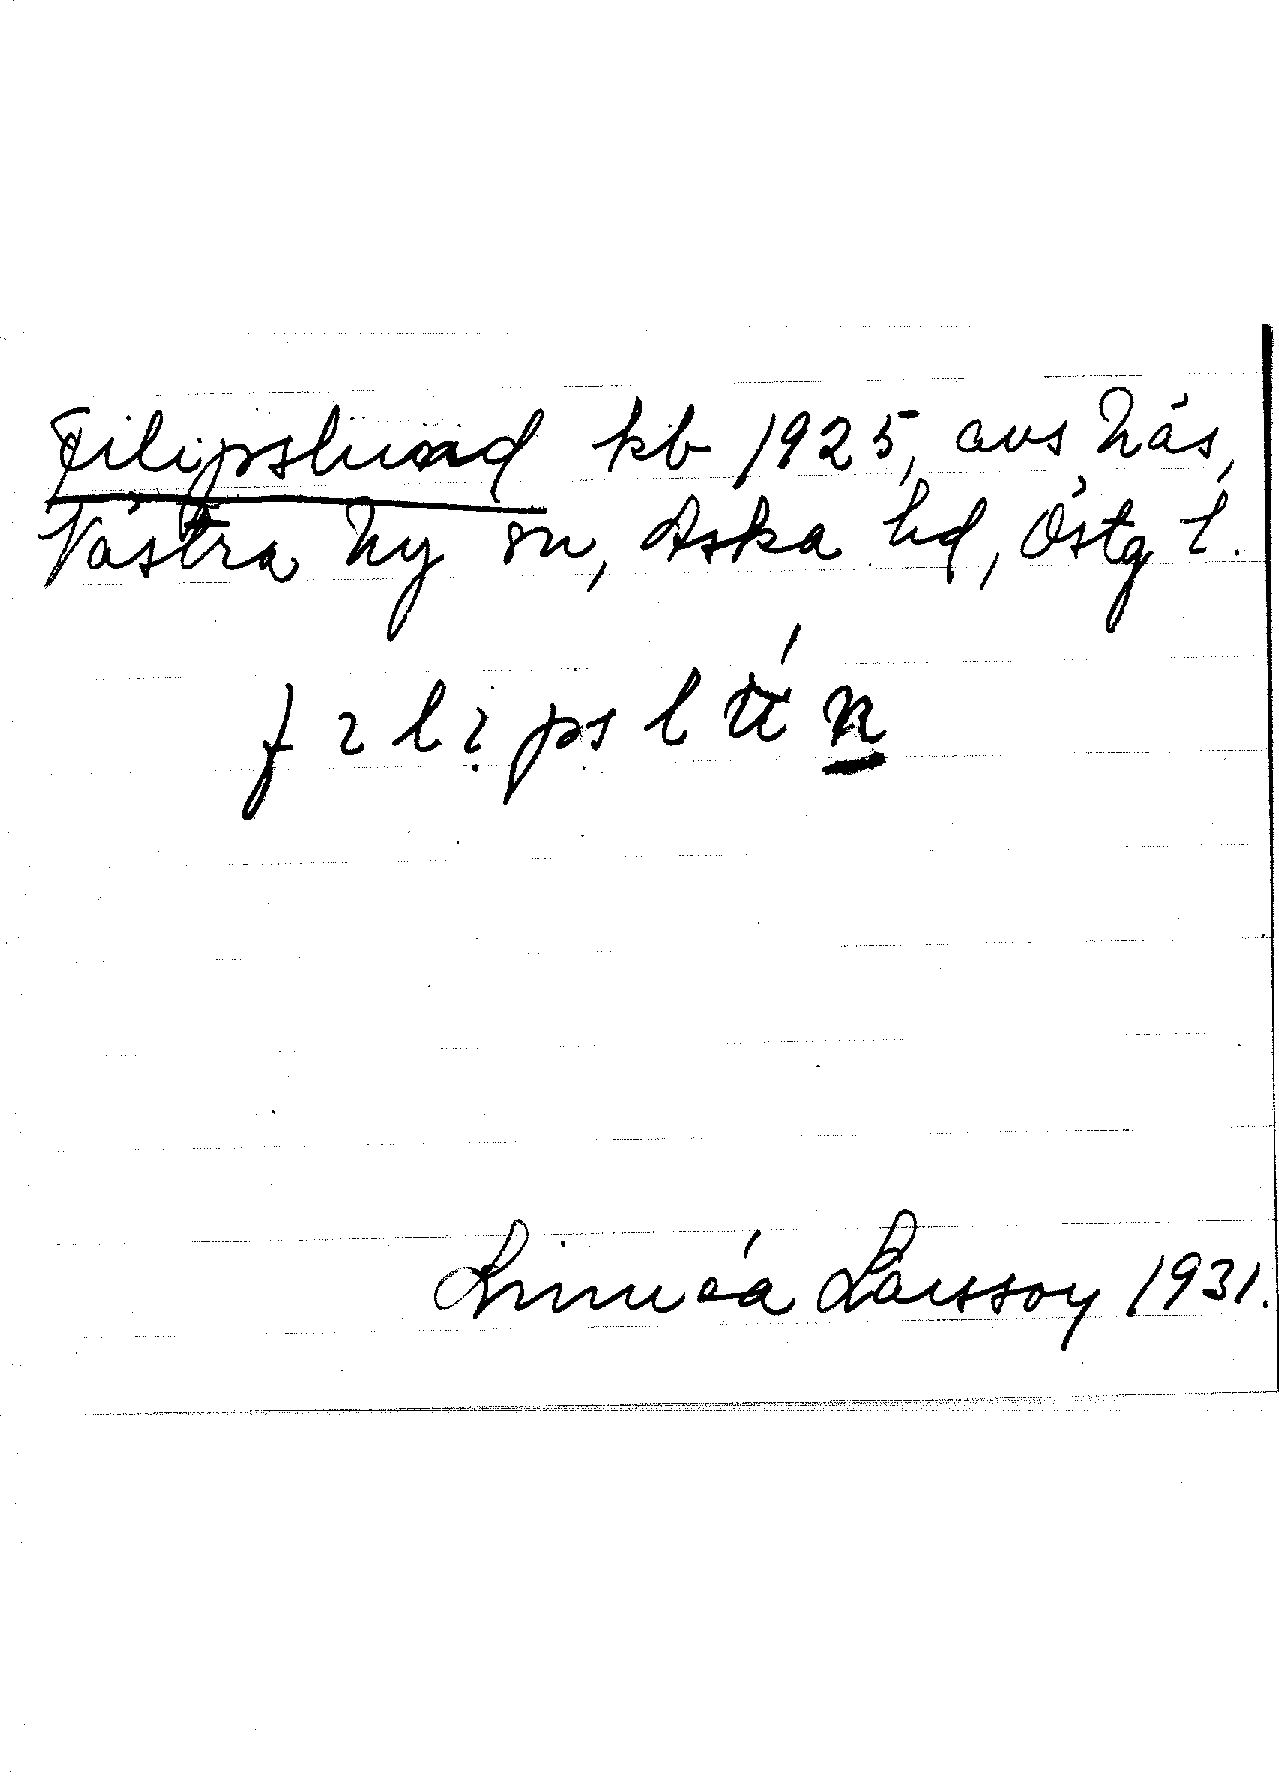 Filipslund kb 1925, avs Näs,
Västra Ny sn, Aska hd, Östg l.
filipslún
Linnéa Larsson 1931.